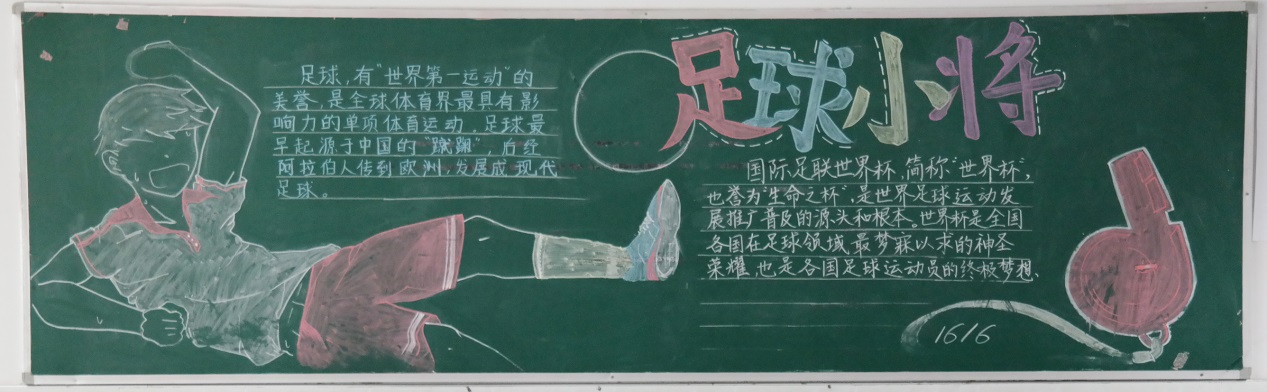 足球小将
足球,有"世界第一运动"的
美誉,是全球体育界最具有影
响力的单项体育运动。足球最
早起源于中国的"蹴鞠",后经
阿拉伯人传到欧洲,发展成现代
足球。
国际足联世界杯,简称"世界杯",
也誉为"生命之杯",是世界足球运动发
展推广普及的源头和根本。世界杯是全国
各国在足球领域最梦寐以求的神圣
荣耀,也是各国足球运动员的终极梦想、
1616